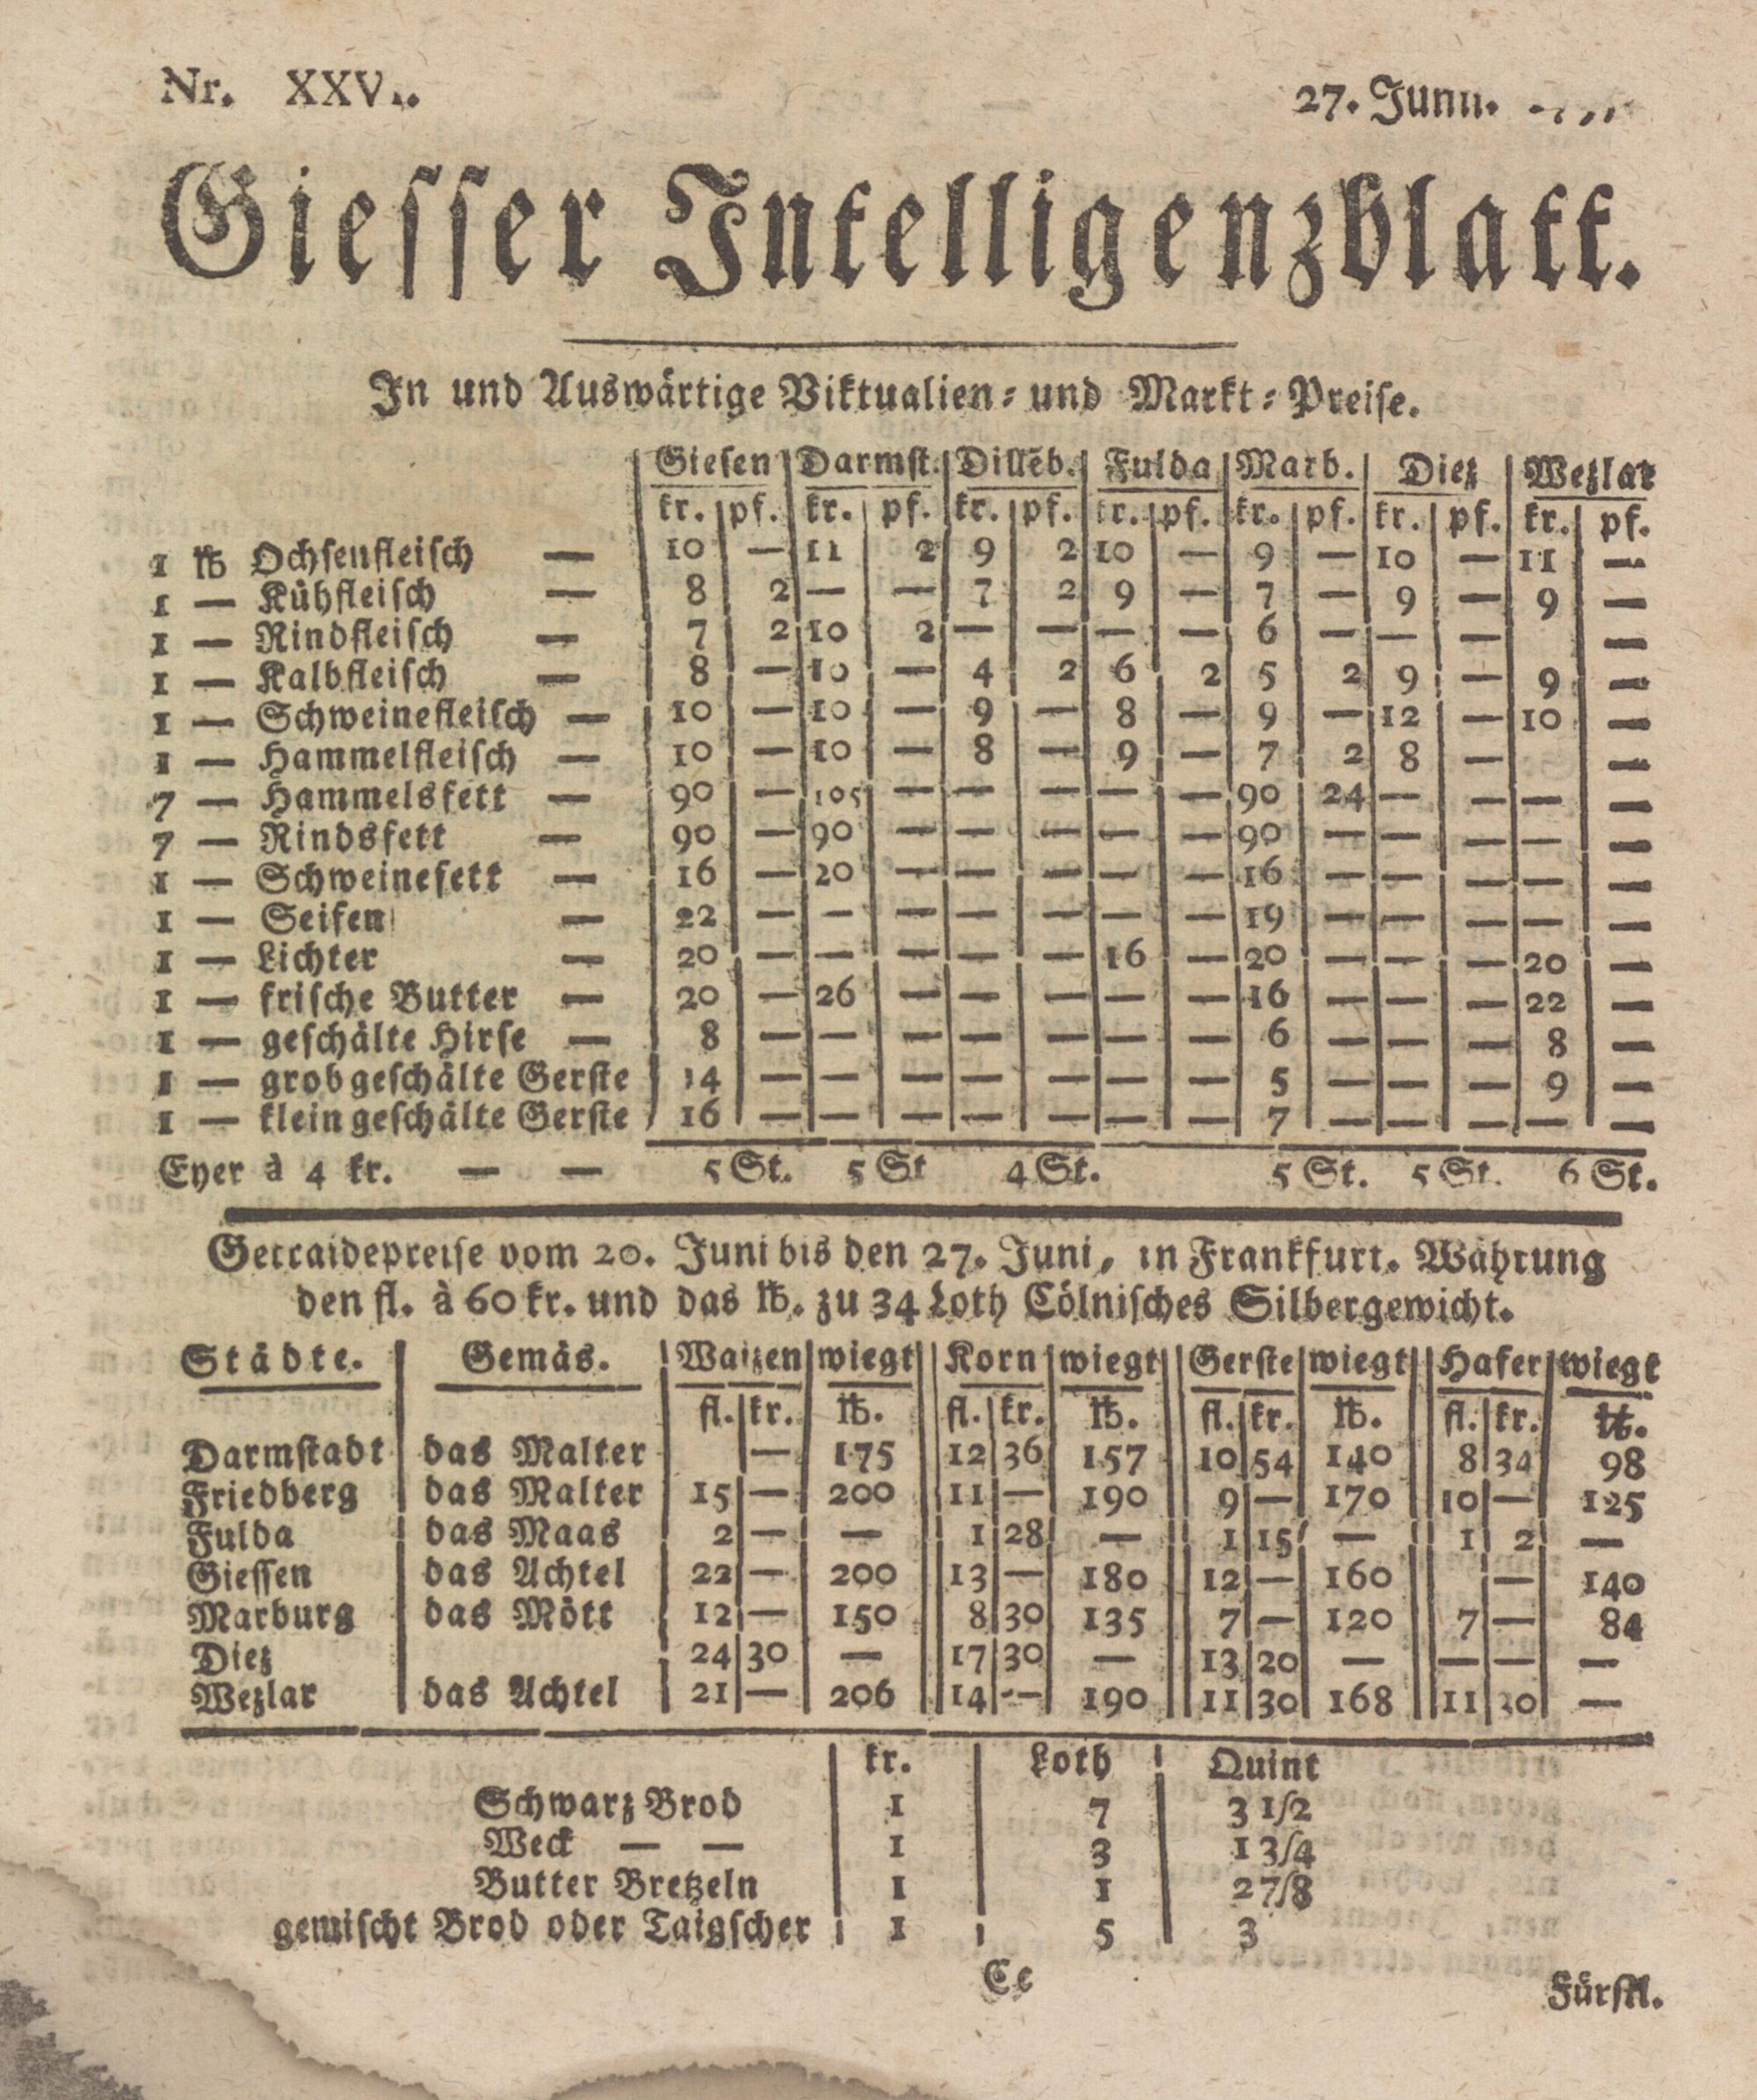 Nr. XXV
27. Junii.
Giesser Intelligenzblatt.
In und Auswärtige Viktualien- und Markt-Preise.
Giesen Darmst. Dillēb. Fulda Marb. Diez Wezlar
kr. pf. kr. pf. kr. pf. kr. pf. kr. pf. kr. pf. kr. pf.
1 ℔ Ochsenfleisch — 10 — 11 2 9 2 10 — 9 — 10 — 11 —
1 — Kühfleisch — 8 2 — — 7 2 9 — 7 — 9 — 9 —
1 — Rindfleisch — 7 2 10 2 — — — — 6 — — — —
1 — Kalbfleisch — 8 — 10 — 4 2 6 2 5 2 9 — 9 —
1 — Schweinefleisch — 10 — 10 — 9 — 8 — 9 — 12 — 10 —
1 — Hammelfleisch — 10 — 10 — 8 — 9 — 7 2 8 — —
7 — Hammelsfett — 90 — 105 — — — — — 90 24 — — — —
7 — Rindsfett — 90 — 90 — — — — — 90 — — — — —
1 — Schweinefett — 16 — 20 — — — — — 16 — — — — —
1 — Seifen — 22 — — — — — — — 19 — — — — —
1 — Lichter — 20 — — — — — 16 — 20 — — — 20 —
1 — frische Butter — 20 — 26 — — — — — 16 — — — 22 —
1 — geschälte Hirse — 8 — — — — — — — 6 — — — 8 —
1 — grob geschälte Gerste 14 — — — — — — — 5 — — — 9 —
1 — klein geschälte Gerste 16 — — — — — — — 7 — — — — —
Eyer à 4 kr. — — 5 St. 5 St 4 St. 5 St. 5 St. 6 St.
Getraidepreise vom 20. Juni bis den 27. Juni, in Frankfurt. Währung
den fl. à 60 kr. und das ℔. zu 34 Loth Cölnisches Silbergewicht.
Städte. Gemäs. Waizen wiegt Korn wiegt Gerste wiegt Hafer wiegt
fl. kr. ℔. fl. kr. ℔. fl. kr. ℔. fl. kr. ℔.
Darmstadt das Malter — 175 12 36 157 10 54 140 8 34 98
Friedberg das Malter 15 — 200 11 — 190 9 — 170 10 — 125
Fulda das Maas 2 — — 1 28 — 1 15 — 1 2 —
Giessen das Achtel 22 — 200 13 — 180 12 — 160 — 140
Marburg das Mött 12 — 150 8 30 135 7 — 120 7 — 84
Diez 24 30 — 17 30 — 13 20 — — — —
Wezlar das Achtel 21 — 206 14 — 190 11 30 168 11 —
kr. Loth Quint
Schwarz Brod 1 7 3 1/2
Weck — — 1 3 1 3/4
Butter Bretzeln 1 1 2 7/8
gemischt Brod oder Taigscher 1 5 3
Cc
Fürstl.